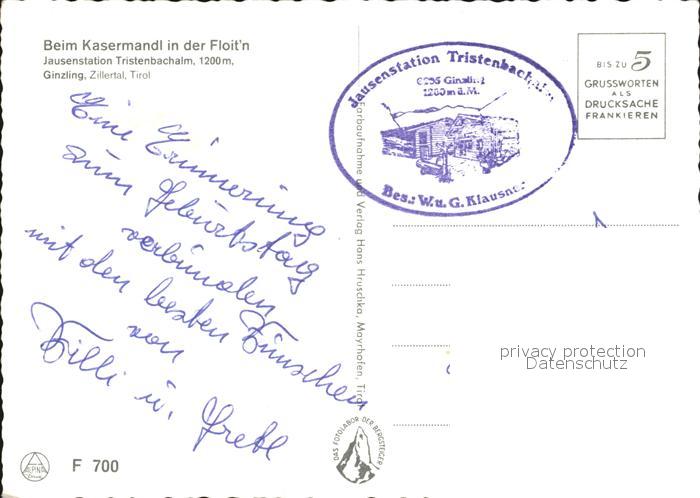 Beim Kasermandl in der Floit'n
Jausenstation Tristenbachalm, 1200m,
Ginzling, Zillertal, Tirol
Eine Erinnerung
zum Geburtstag
verbunden
mit den besten Wünschen
von
Willi u. Gretl
F 700
ALPINA
Druck
Farbaufnahme und Verlag Hans Hruschka, Mayrhofen, Tirol
DAS FOTOLABOR DER BERGSTEIGER
Jausenstation Tristenbachalm
6295 Ginzling
1200 m ü. M.
Bes.: W. u. G. Klausner
BIS ZU 5
GRUSSWORTEN
ALS
DRUCKSACHE
FRANKIEREN
privacy protection
Datenschutz